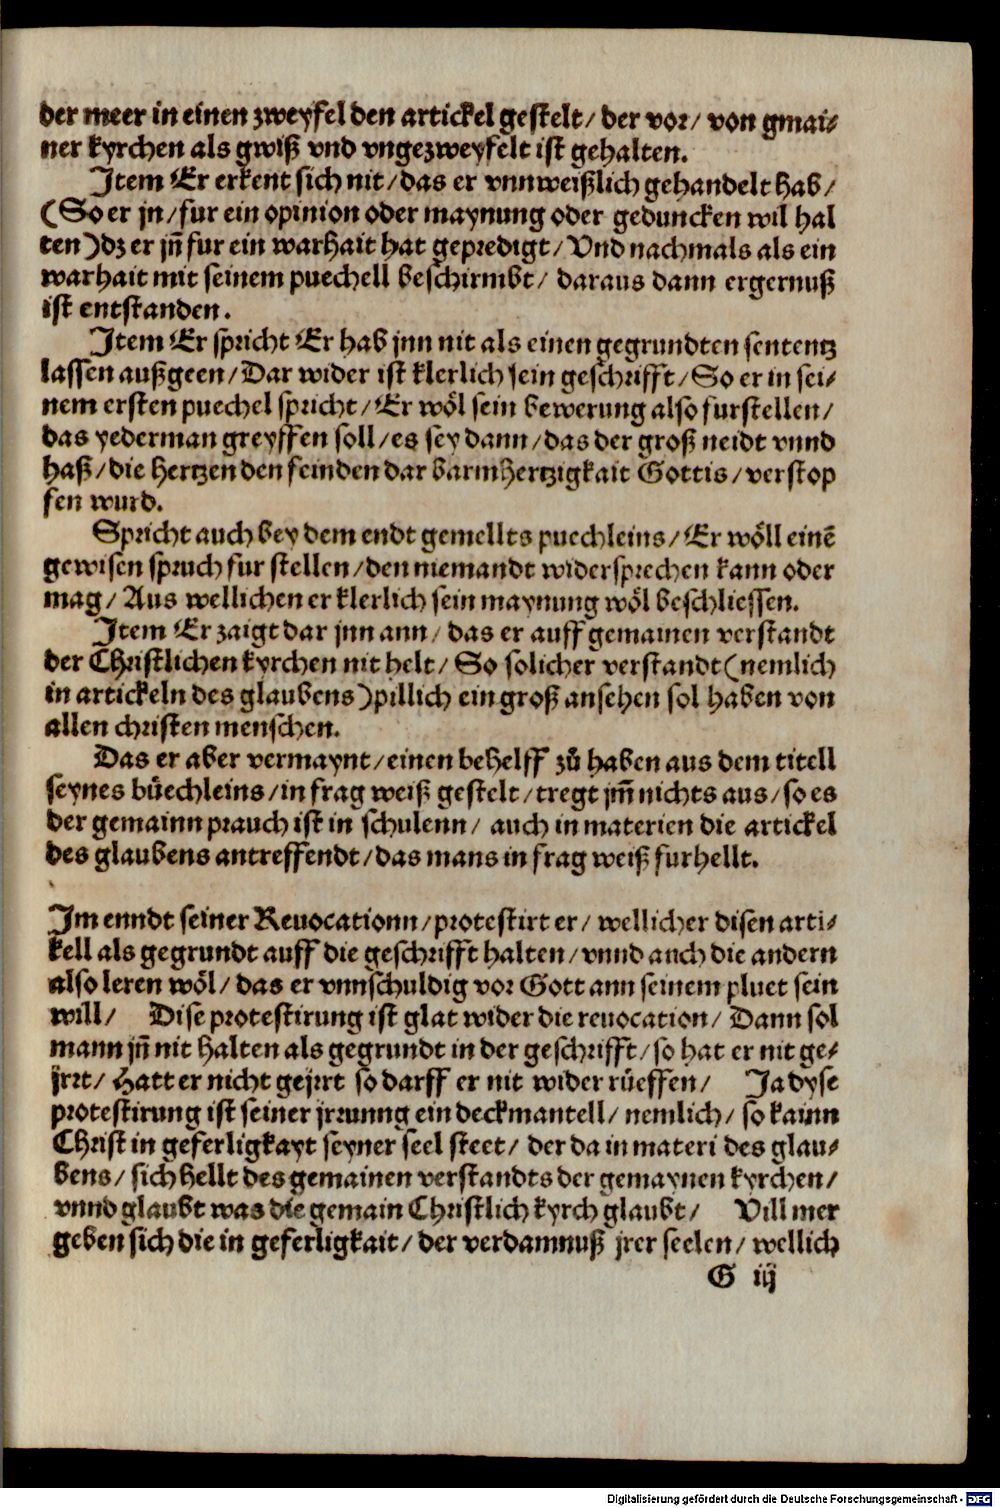 der meer in einen zweyfel den artickel gestelt/ der vor/ von gmai⸗
ner kyrchen als gwiß vnd vngezweyfelt ist gehalten.
Jtem Er erkent sich nit/ das er vnnweißlich gehandelt hab/
(So er jn/ fur ein opinion oder maynung oder geduncken wil hal
ten) dz er jñ fur ein warhait hat gepredigt/ Vnd nachmals als ein
warhait mit seinem puechell beschirmbt/ daraus dann ergernuß
ist entstanden.
Jtem Er spricht Er hab jnn nit als einen gegrundten sententz
lassen außgeen/ Dar wider ist klerlich sein geschrifft/ So er in sei⸗
nem ersten puechel spricht/ Er wöl sein bewerung also furstellen/
das yederman greyffen soll/ es sey dann/ das der groß neidt vnnd
haß/ die hertzen den feinden dar barmhertzigkait Gottis/ verstop
fen wurd.
Spricht auch bey dem endt gemellts puechleins/ Er wöll einē
gewisen spruch fur stellen/ den niemandt widersprechen kann oder
mag/ Aus wellichen er klerlich sein maynung wöl beschliessen.
Jtem Er zaigt dar jnn ann/ das er auff gemainen verstandt
der Christlichen kyrchen nit helt/ So solicher verstandt (nemlich
in artickeln des glaubens) pillich ein groß ansehen sol haben von
allen christen menschen.
Das er aber vermaynt/ einen behelff zů haben aus dem titell
seynes büechleins/ in frag weiß gestelt/ tregt jm̄ nichts aus/ so es
der gemainn prauch ist in schulenn/ auch in materien die artickel
des glaubens antreffendt/ das mans in frag weiß furhellt.
Jm enndt seiner Reuocationn/ protestirt er/ wellicher disen arti⸗
kell als gegrundt auff die geschrifft halten/ vnnd auch die andern
also leren wöl/ das er vnnschuldig vor Gott ann seinem pluet sein
will/ Dise protestirung ist glat wider die reuocation/ Dann sol
mann jñ nit halten als gegrundt in der geschrifft/ so hat er nit ge⸗
jrrt/ Hatt er nicht gejrrt so darff er nit wider rüeffen/ Ja dyse
protestirung ist seiner jrrunng ein deckmantell/ nemlich/ so kainn
Christ in geferligkayt seyner seel steet/ der da in materi des glau⸗
bens/ sich hellt des gemainen verstandts der gemaynen kyrchen/
vnnd glaubt was die gemain Christlich kyrch glaubt/ Vill mer
geben sich die in geferligkait/ der verdamnuß jrer seelen/ wellich
G iij
Digitalisierung gefördert durch die Deutsche Forschungsgemeinschaft - DFG